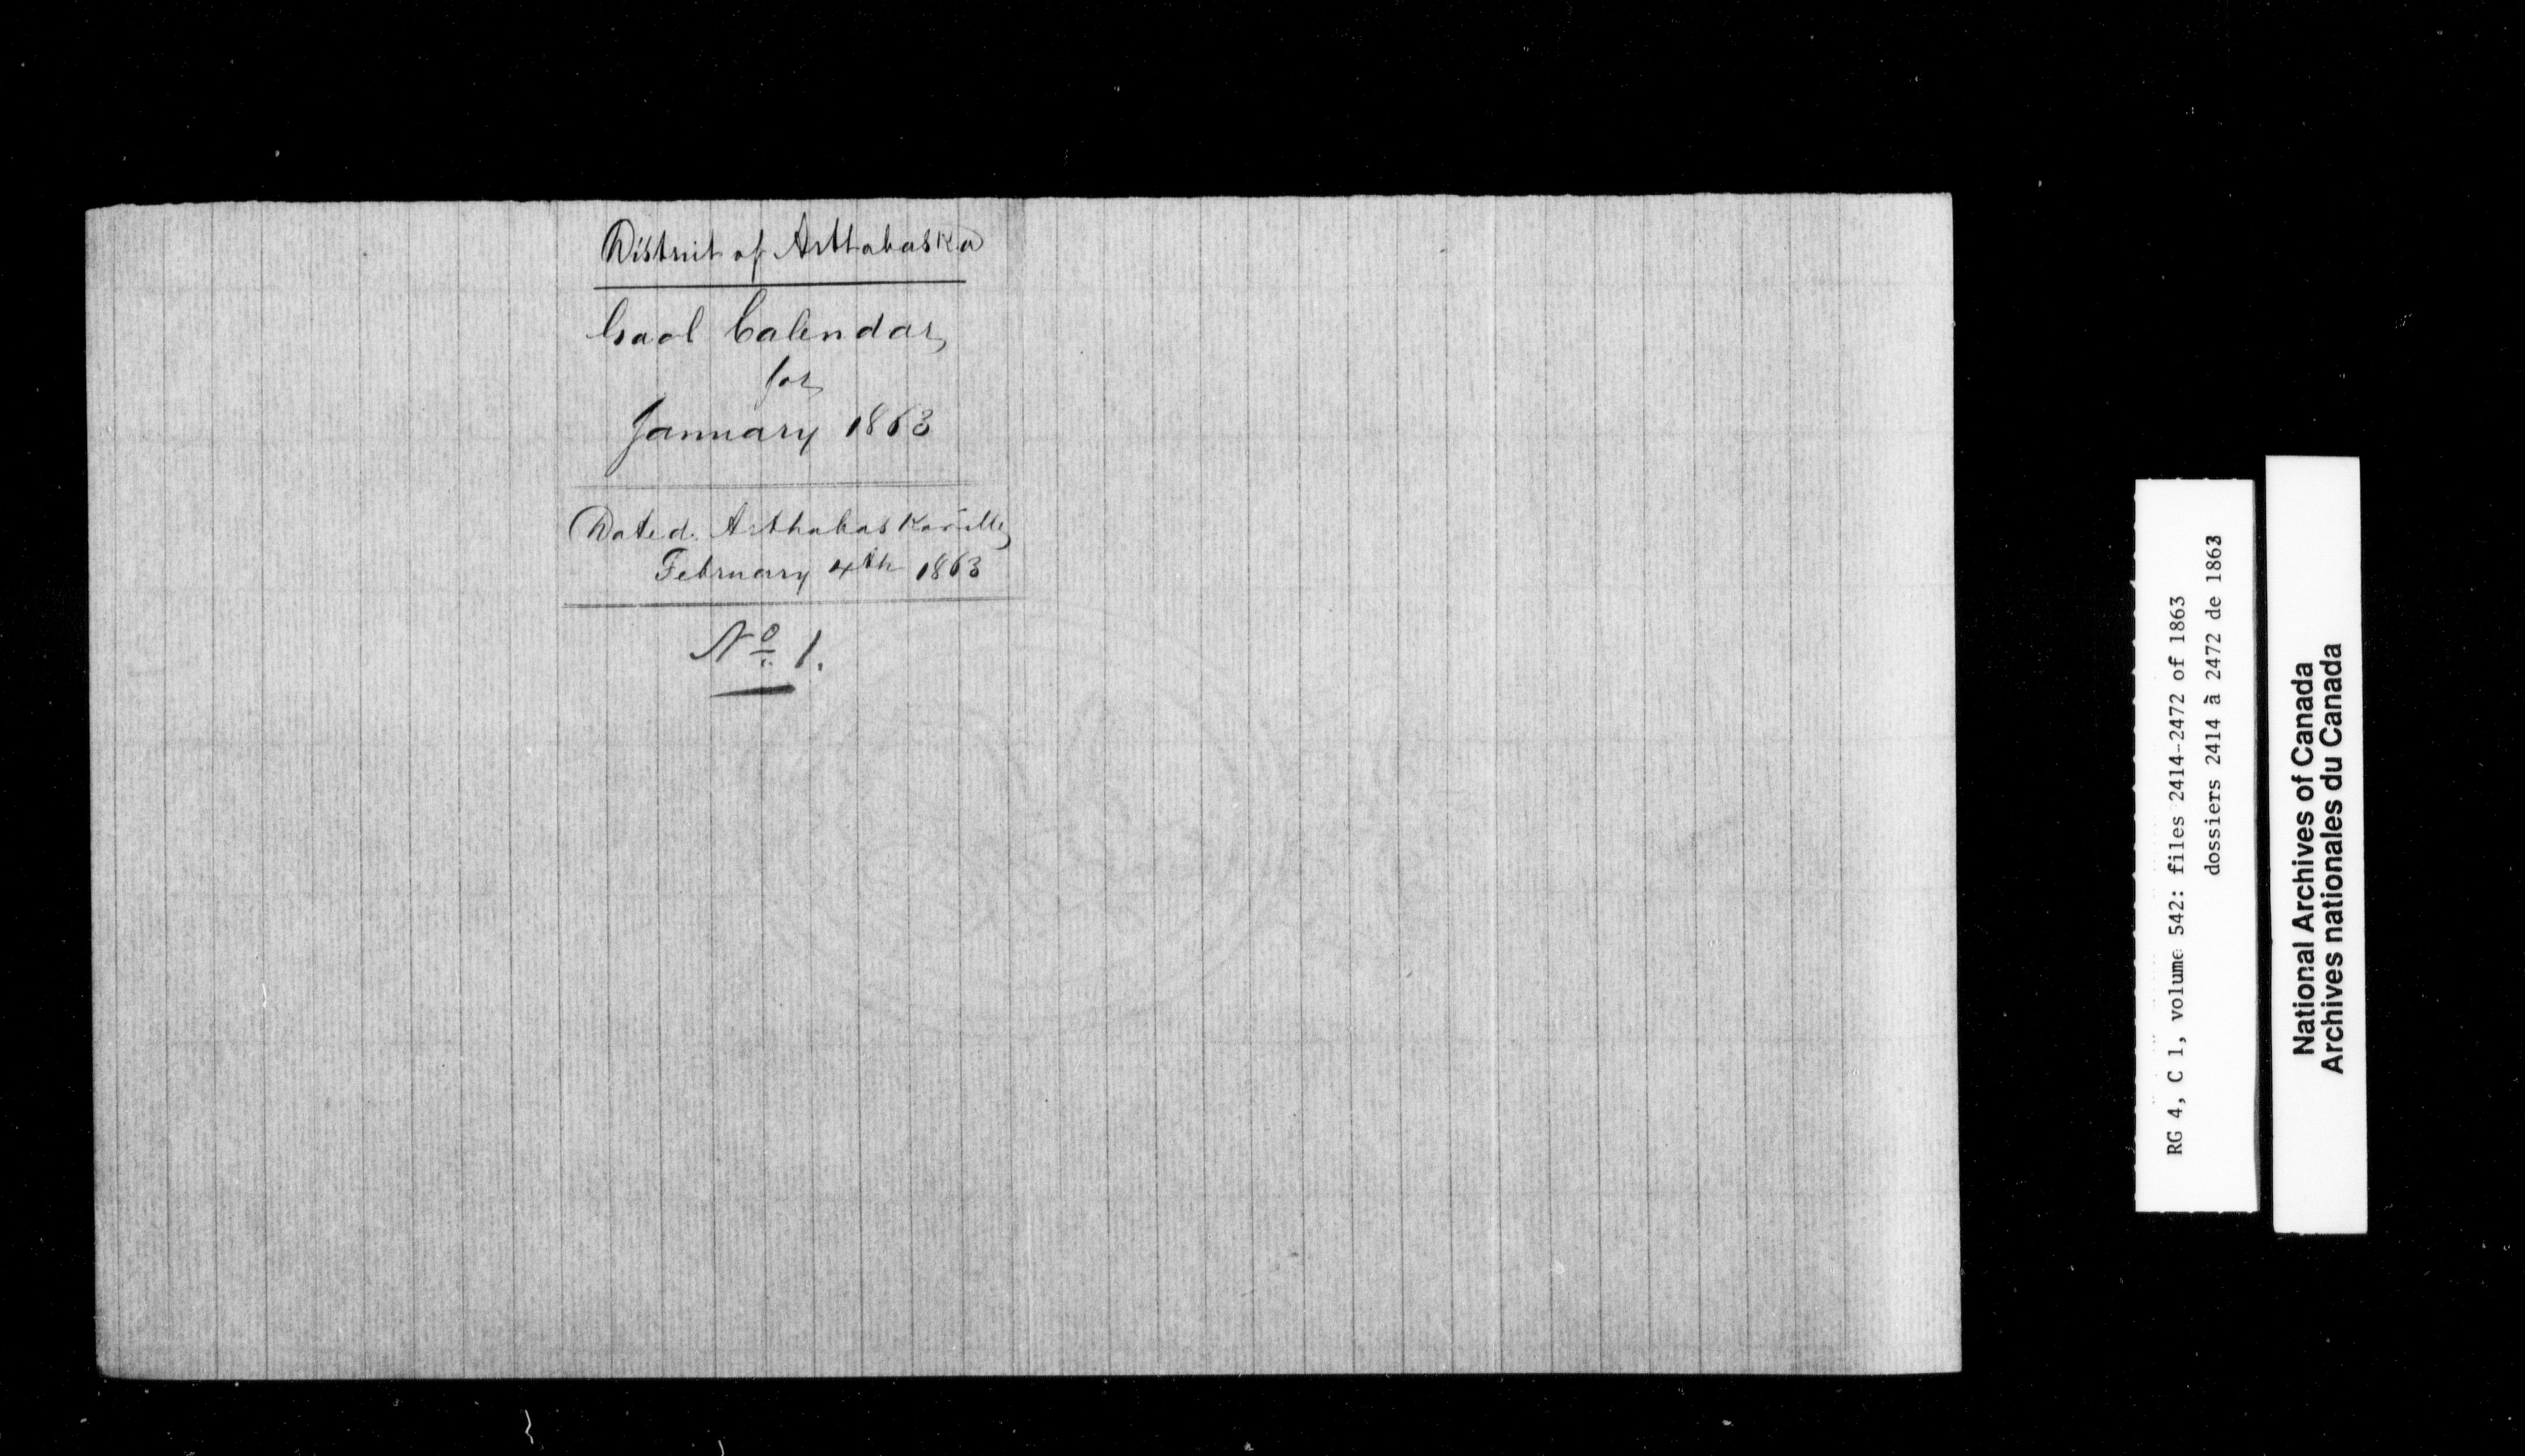 District of Arthabaska
Gaol Calendar
for
January 1863
Dated. Arthabaskaville
February 4th 1863
No 1.
RG 4, C 1, volume 542: files 2414-2472 of 1863
dossiers 2414 à 2472 de 1863
National Archives of Canada
Archives nationales du Canada